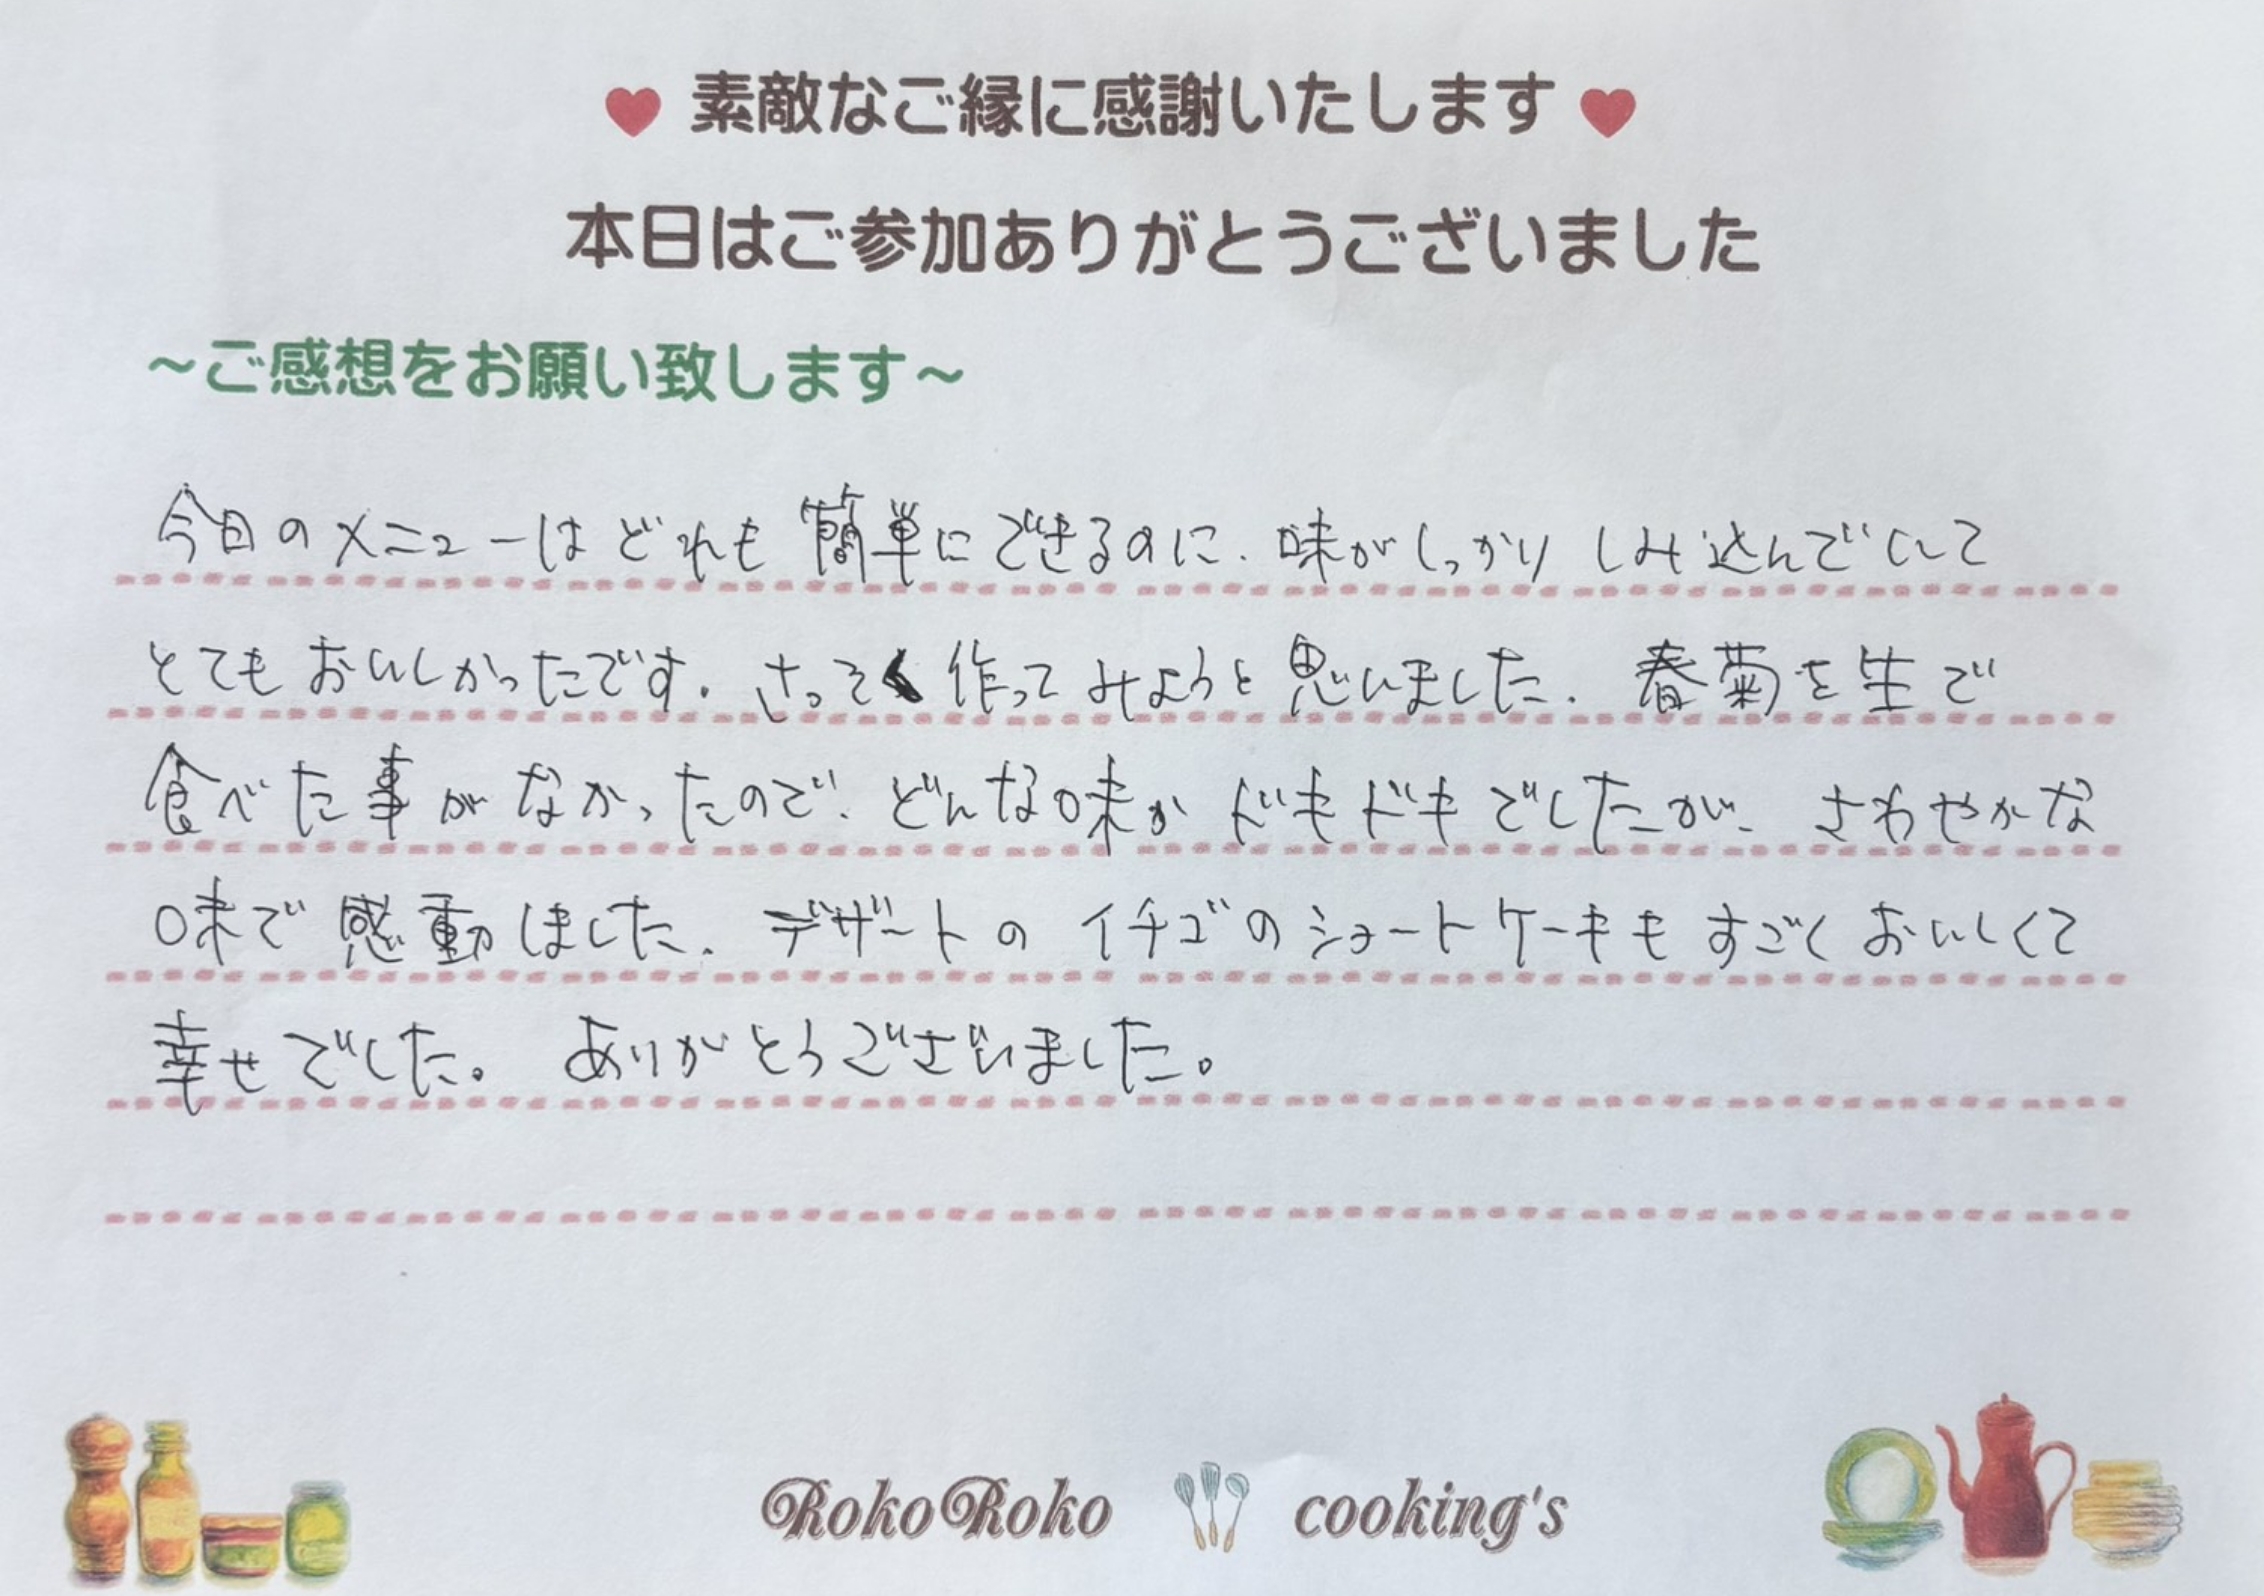 素敵なご縁に感謝いたします
本日はご参加ありがとうございました
~ご感想をお願い致します~
今日のメニューはどれも簡単にできるのに、味がしっかりしみ込んでいて
とてもおいしかったです。さっそく作ってみようと思いました。春菊を生で
食べた事がなかったので、どんな味かドキドキでしたが、さわやかな
味で感動しました。デザートのイチゴのショートケーキもすごくおいしくて
幸せでした。ありがとうございました。
RokoRoko cooking's